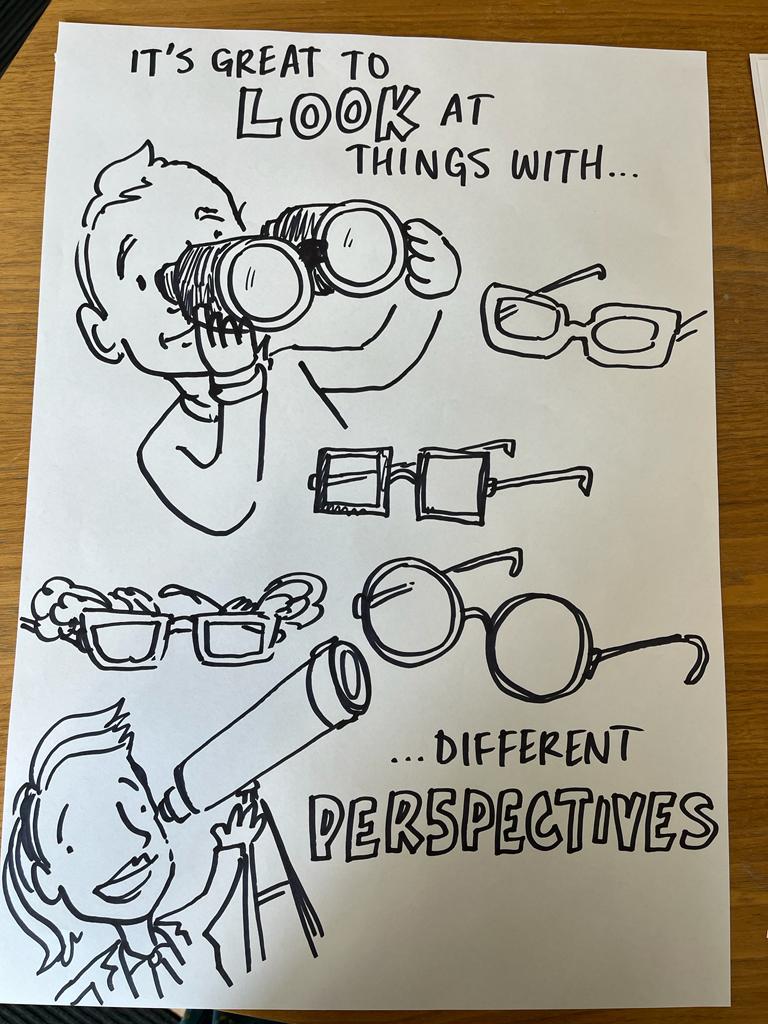 IT'S GREAT TO
LOOK AT
THINGS WITH...
...DIFFERENT
PERSPECTIVES